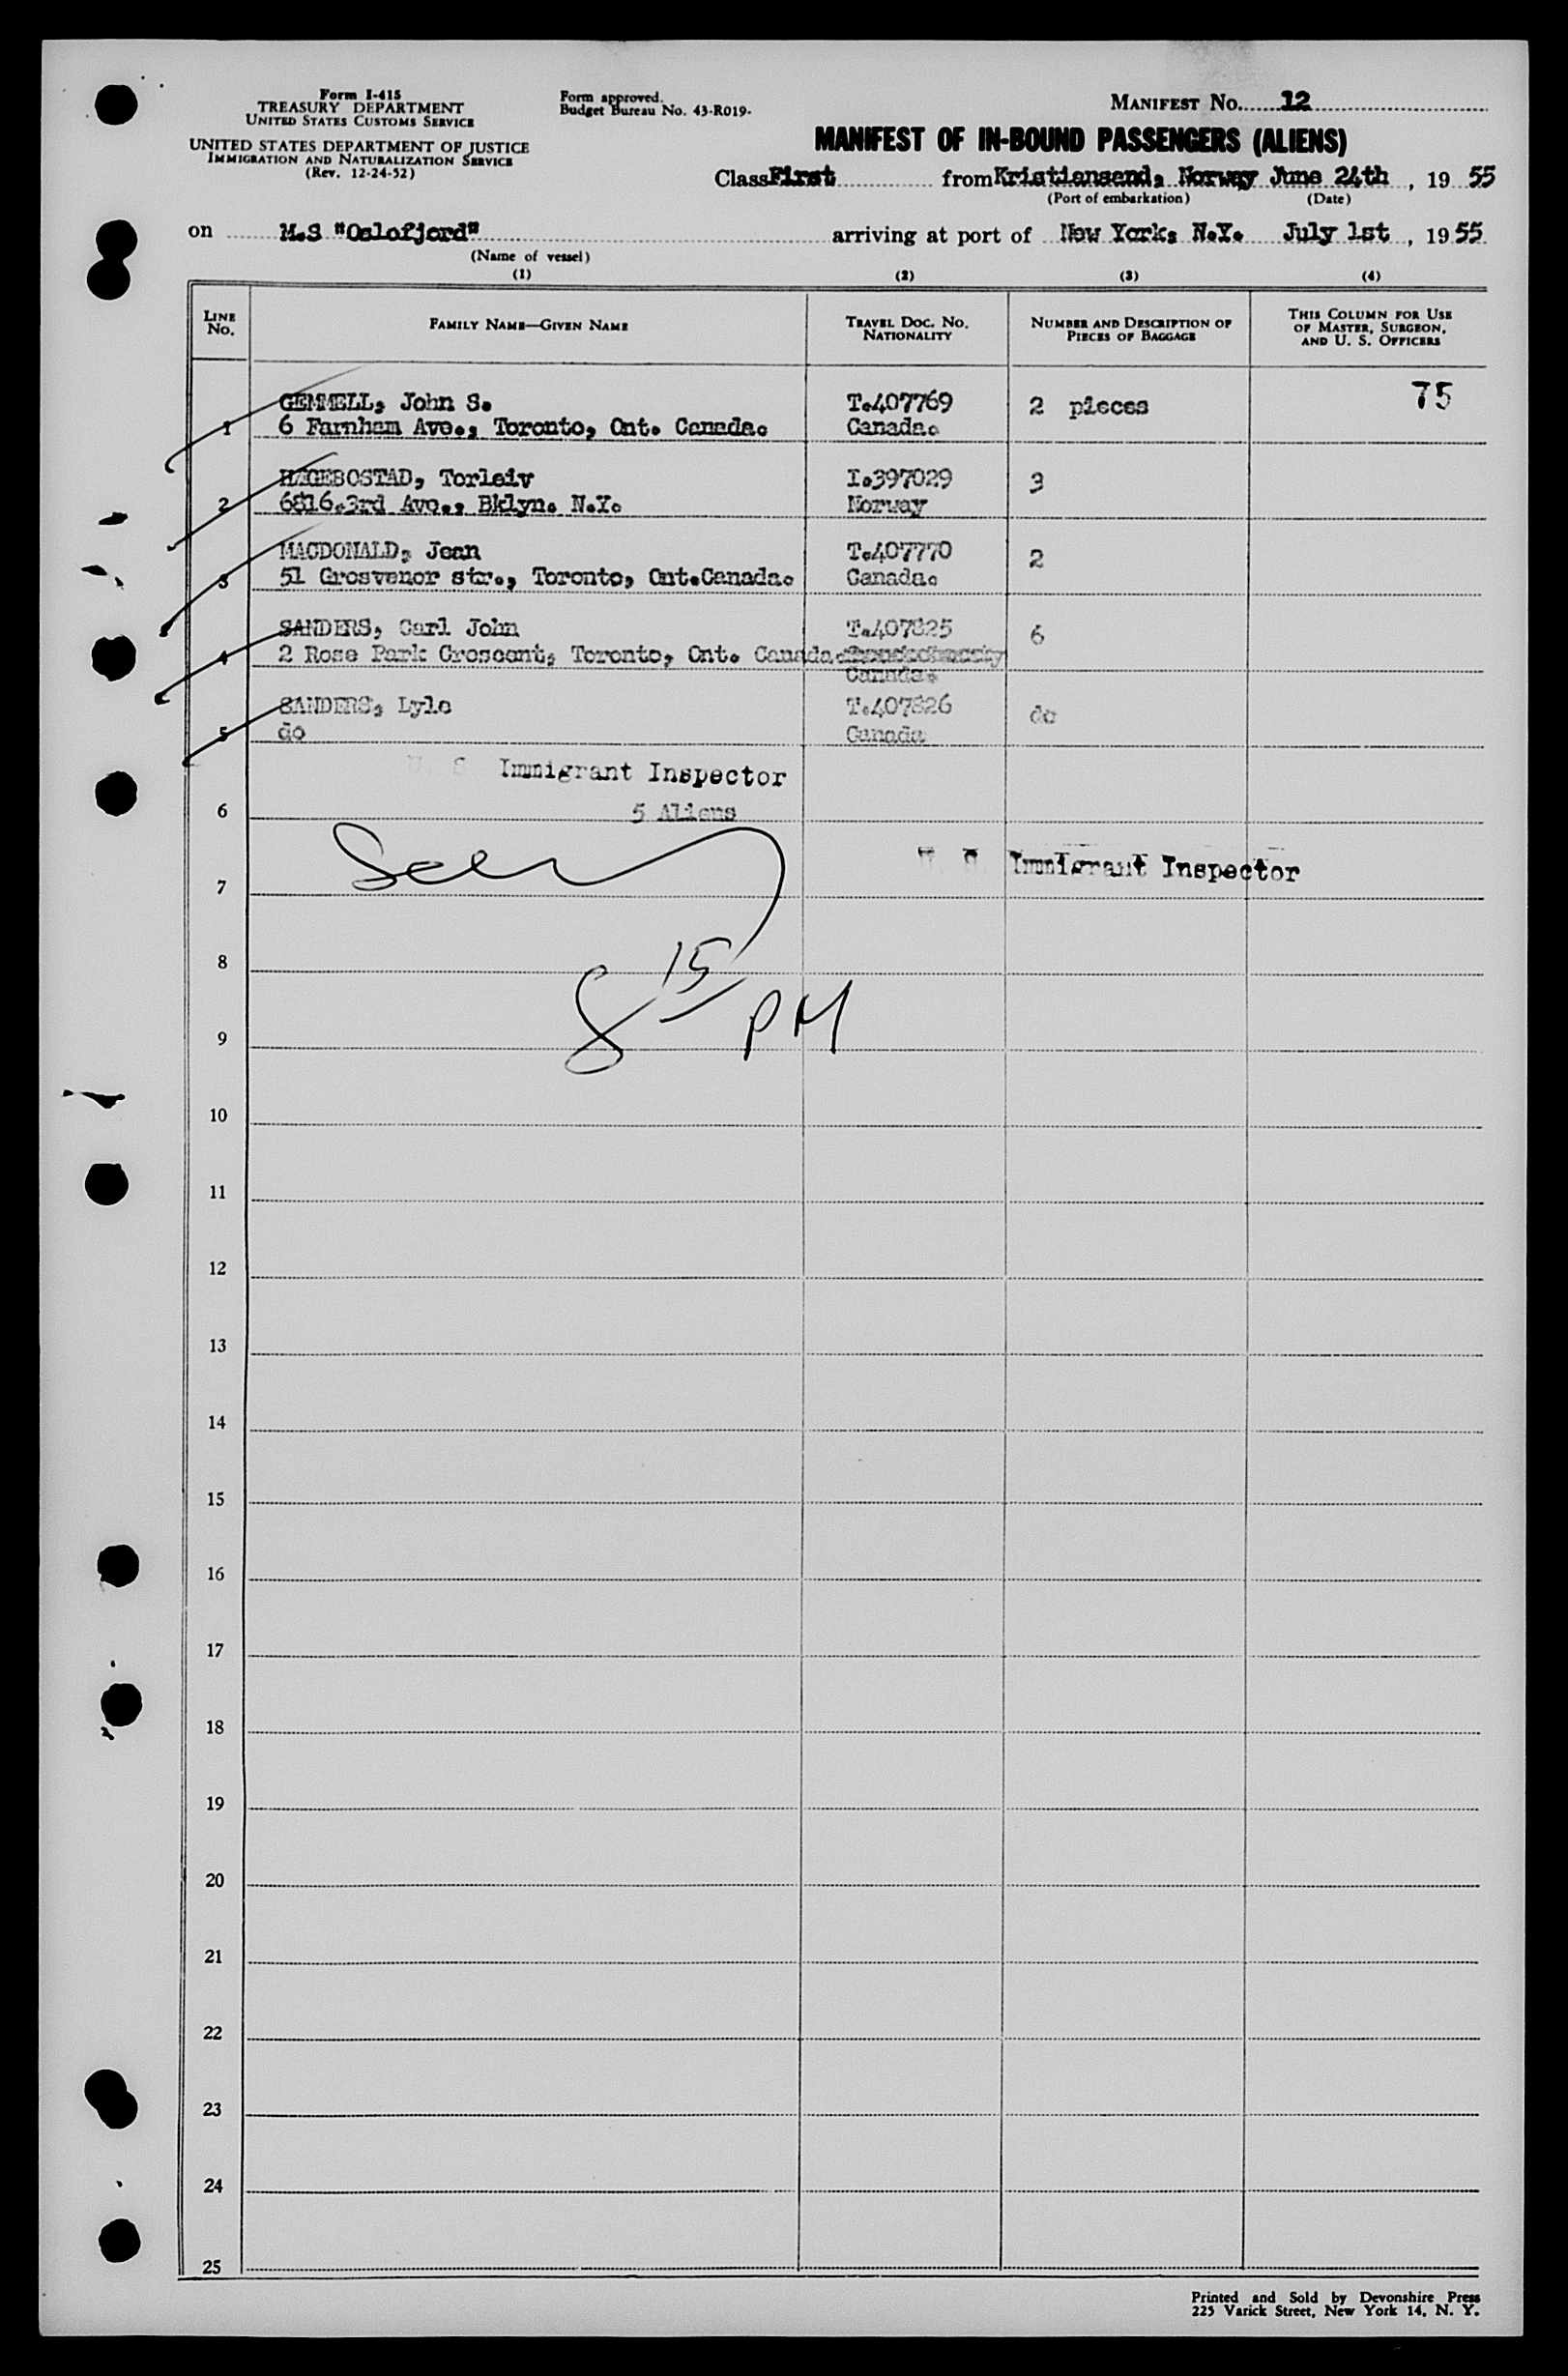 Form I-415
TREASURY DEPARTMENT
UNITED STATES CUSTOMS SERVICE
UNITED STATES DEPARTMENT OF JUSTICE
IMMIGRATION AND NATURALIZATION SERVICE
(Rev. 12-24-52)
Form approved.
Budget Bureau No. 43-R019.
MANIFEST No. 12
MANIFEST OF IN-BOUND PASSENGERS (ALIENS)
Class First from Kristiansand, Norway June 24th, 19 55
(Port of embarkation) (Date)
on M.S "Oslofjord" arriving at port of New York, N.Y. July 1st, 19 55
(Name of vessel)
(1) (2) (3) (4)
LINE No. FAMILY NAME—GIVEN NAME TRAVEL DOC. No. NATIONALITY NUMBER AND DESCRIPTION OF PIECES OF BAGGAGE THIS COLUMN FOR USE OF MASTER, SURGEON, AND U. S. OFFICERS
75
GEMMELL, John S. T.407769 2 pieces
1 6 Farnham Ave., Toronto, Ont. Canada. Canada.
HÆGEBOSTAD, Torleiv I.397029 3
2 6816.3rd Ave., Bklyn. N.Y. Norway
MACDONALD, Jean T.407770 2
3 51 Grosvenor str., Toronto, Ont.Canada. Canada.
SANDERS, Carl John T.407825 6
4 2 Rose Park Crescent, Toronto, Ont. Canada.
Canada.
SANDERS, Lyle T.407826 do
5 do Canada
U. S. Immigrant Inspector
6 5 Aliens
U. S. Immigrant Inspector
7
8
8 15 PM
9
10
11
12
13
14
15
16
17
18
19
20
21
22
23
24
25
Printed and Sold by Devonshire Press
225 Varick Street, New York 14, N. Y.